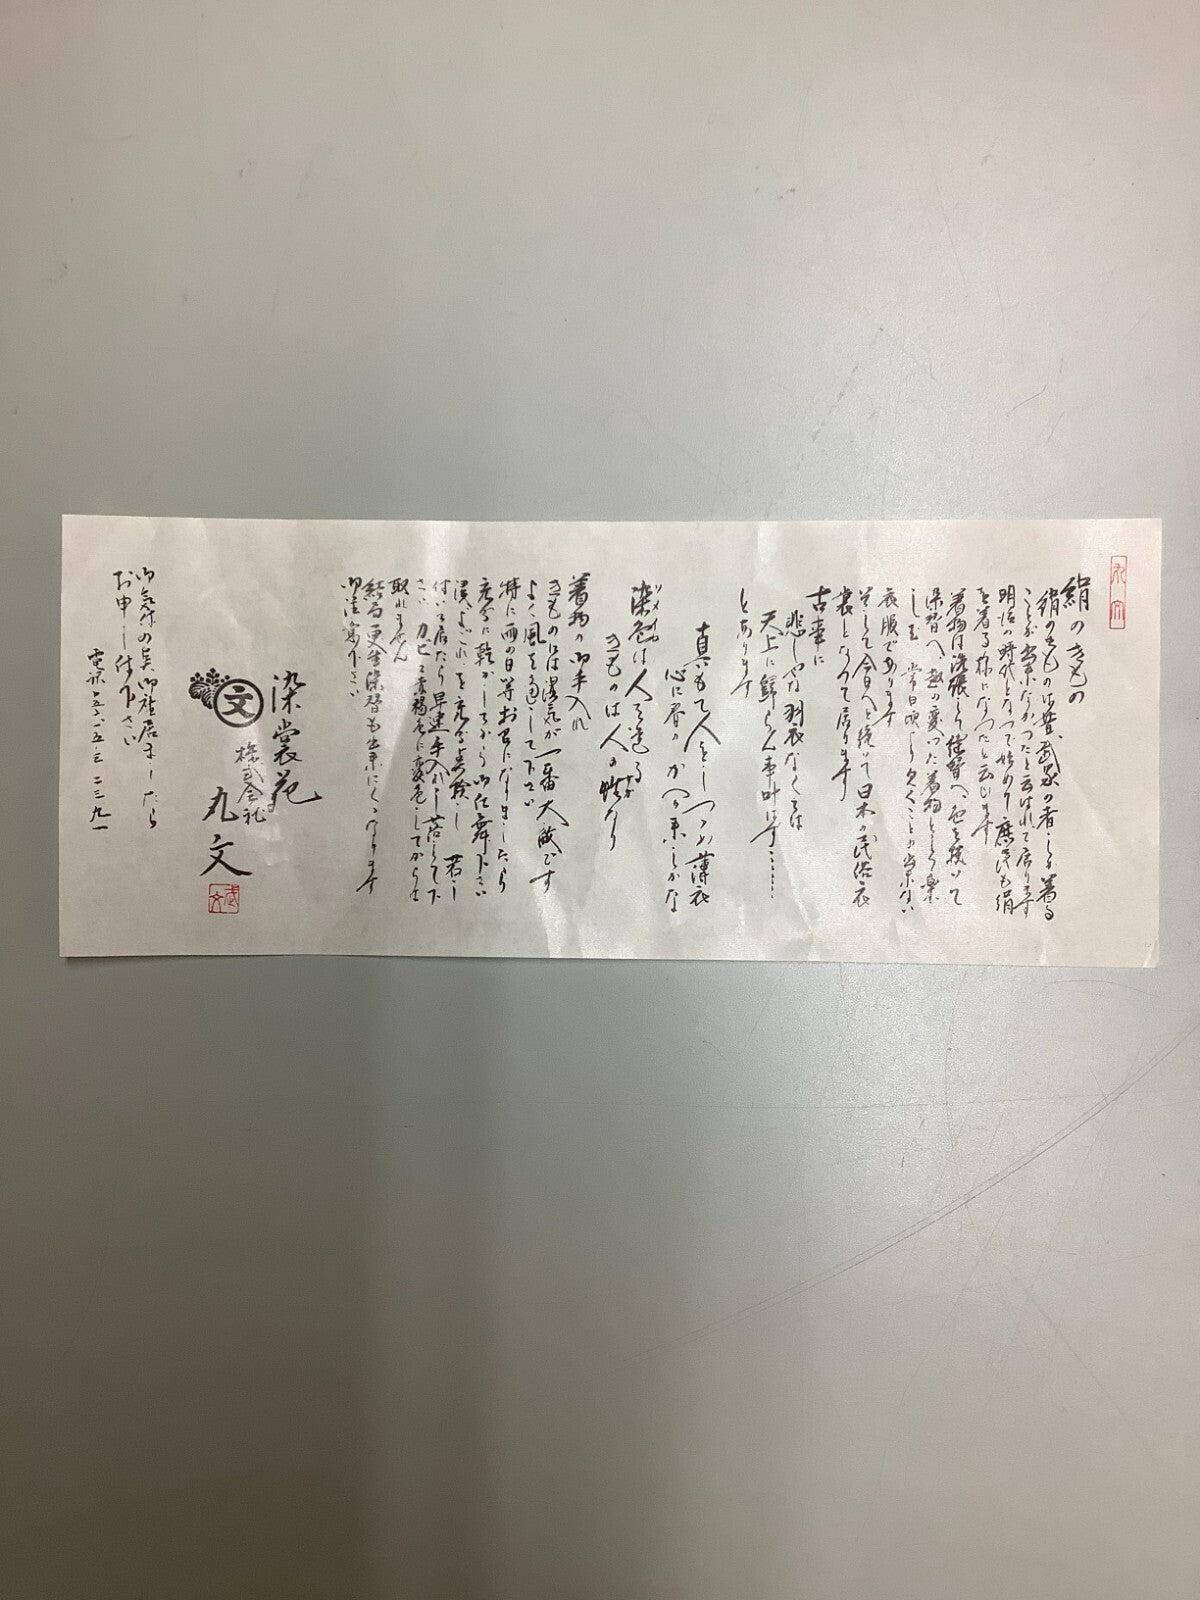 丸文
絹のきもの
絹のきものは昔、武家の者しか着る
ことが出来なかったと云はれて居ります
明治の時代となって始めて庶民も絹
を着る様になったと云ひます
着物は洗張り仕替へ 色を抜いて
染替へ 趣の変った着物として楽
しむ 常日頃 欠くことの出来ない
衣服であります
そして今日へと続いて日本の民俗衣
裳となって居ります
古事に
悲しや羽衣なくては
天上に帰らん事叶はず……
とあります
真もて人をしつつみ薄衣
心に春の かへり来しかな
染色は人を造る
きものは人の 蝶なり
着物の御手入れ
きものには湿気が一番大敵です
よく風を通して下さい
特に雨の日等お召になりましたら
充分に乾かしてから御仕舞下さい
汚、よごれを充分点検し 若し
付いて居たら早速手入れし落して下
さい カビで黄褐色に変色してからは
取れません
結局更生染替も出来にくくなります
御注意下さい
染裳苑
文
株式会社
丸文
御気付の点御座居ましたら
お申し付下さい
電話 五五 五三 二三九一